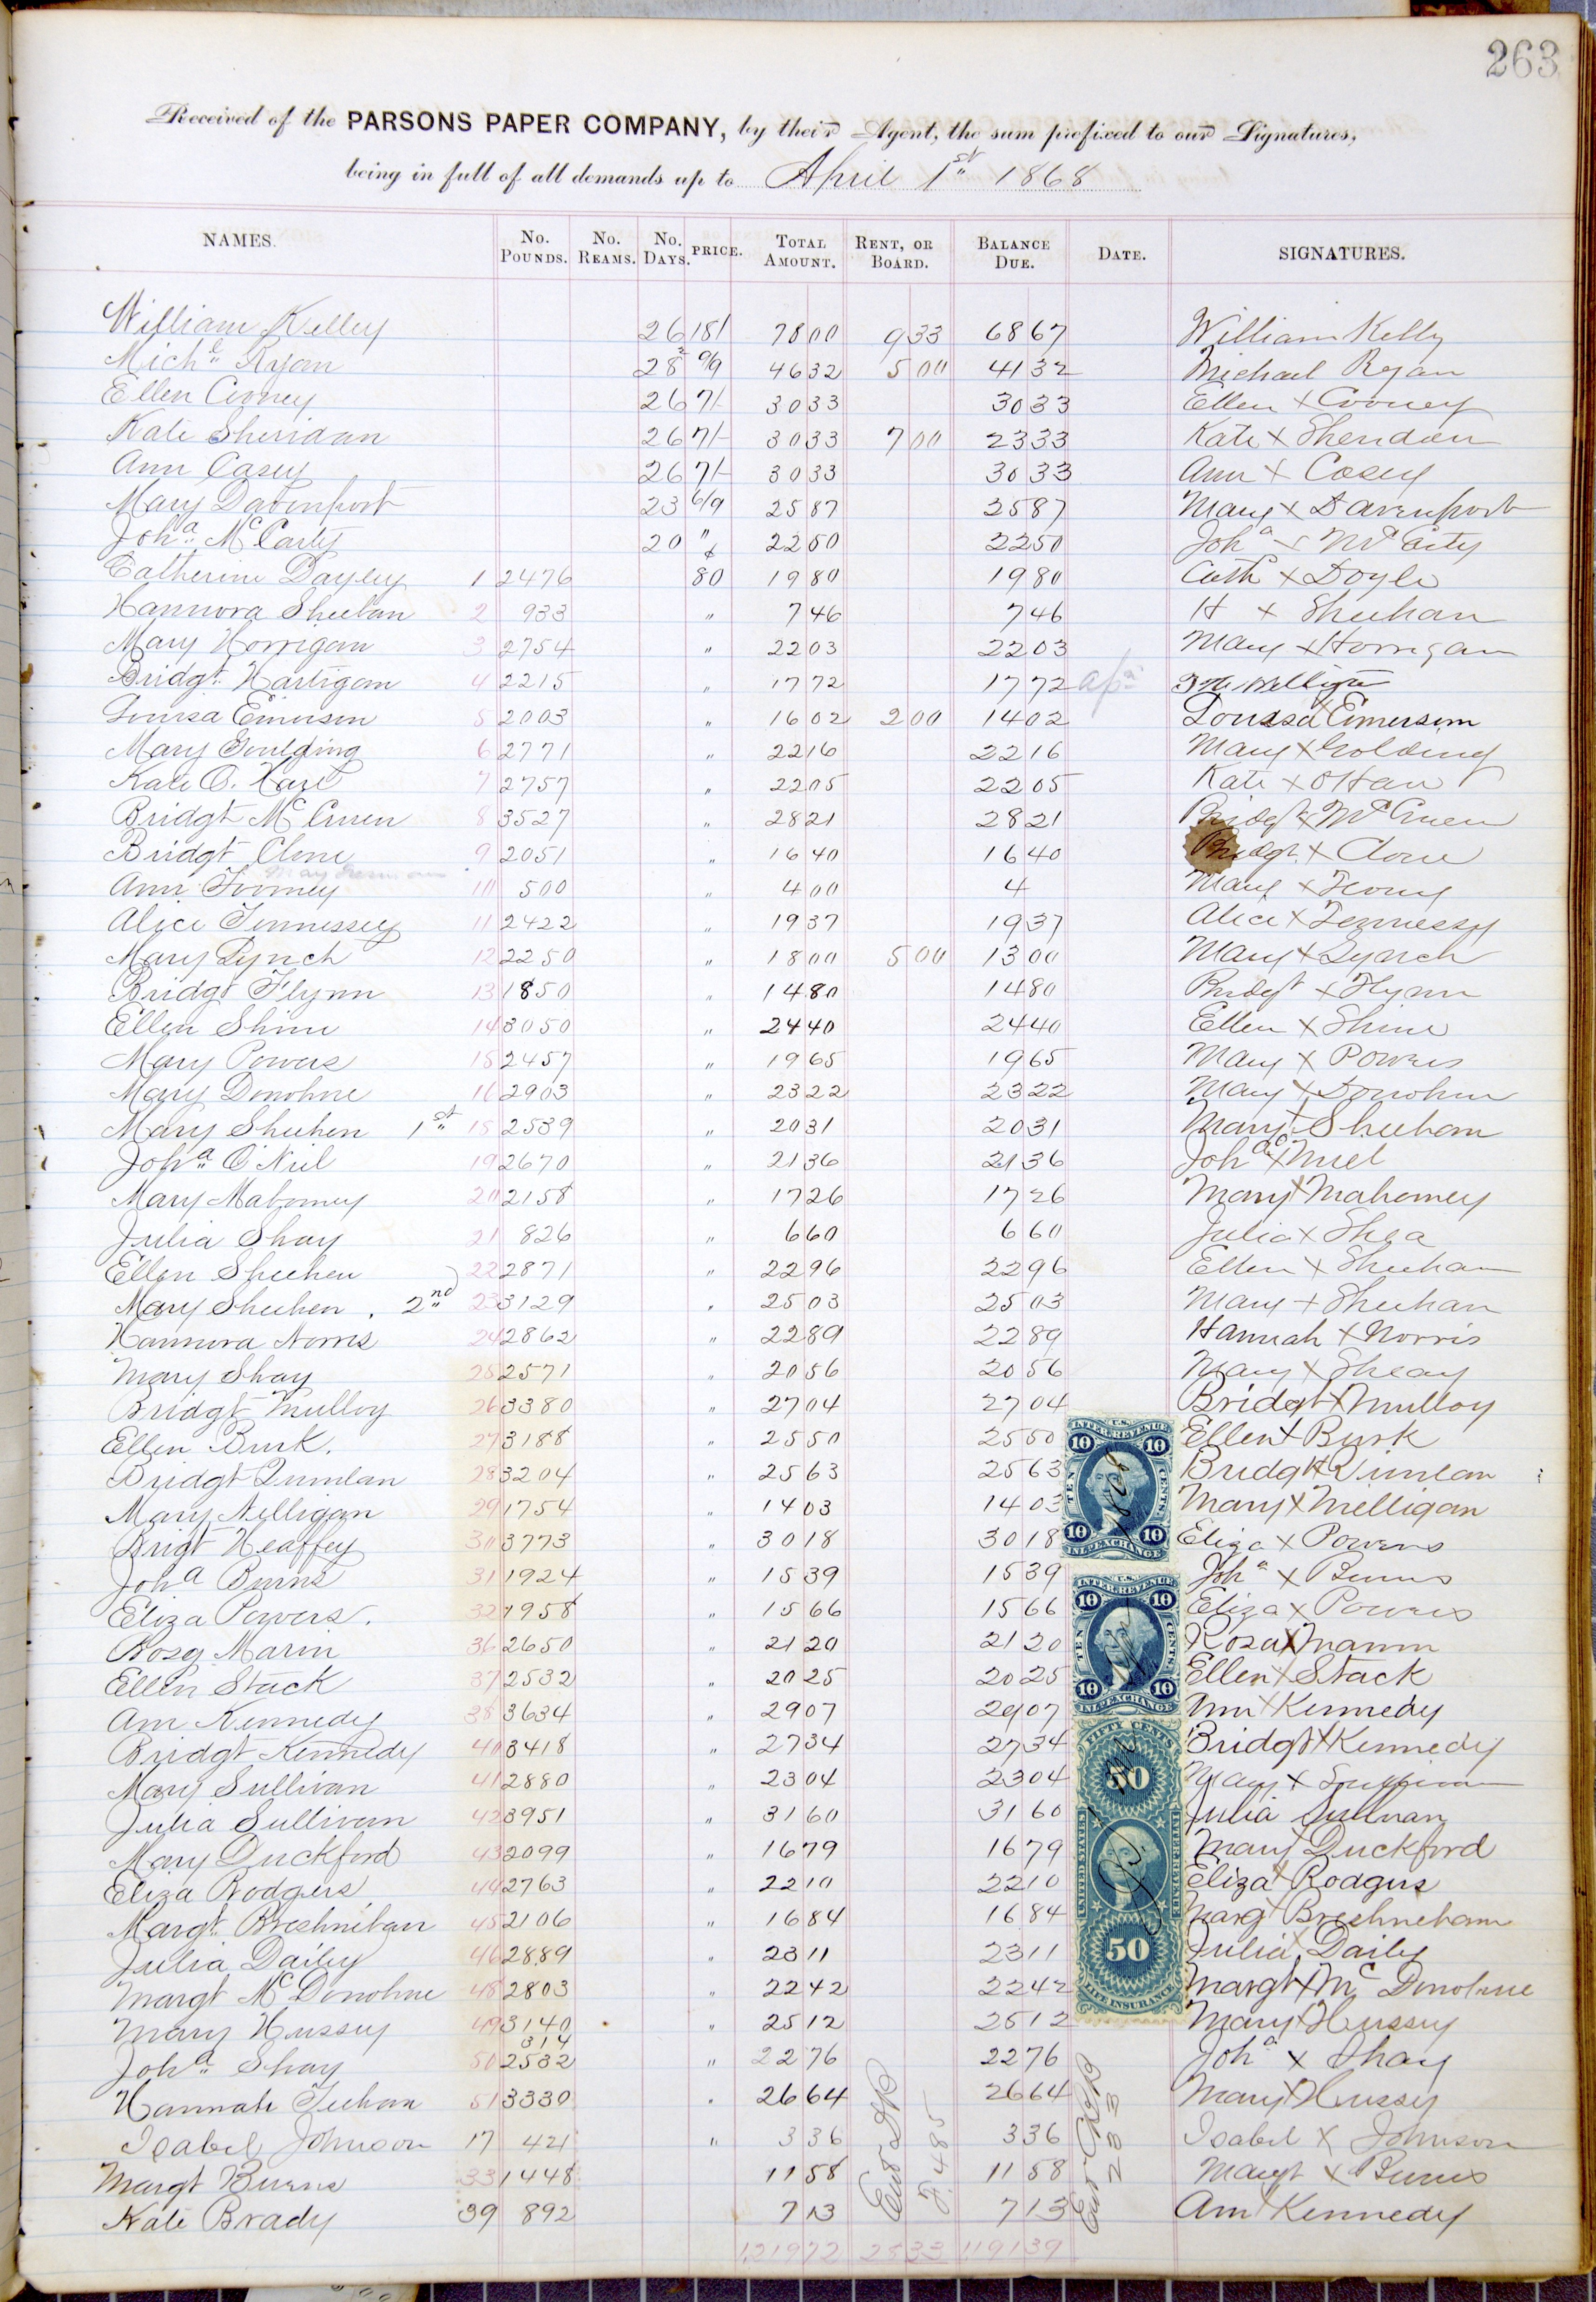 263
Received of the PARSONS PAPER COMPANY, by their Agent, the sum prefixed to our Signatures,
being in full of all demands up to April 1st 1868
NAMES. No. POUNDS. No. REAMS. No. DAYS. PRICE. TOTAL AMOUNT. RENT, OR BOARD. BALANCE DUE. DATE. SIGNATURES.
William Kelley 26 18/ 78 00 9 33 68 67 William Kelly
Michl Ryan 28 9/9 46 32 5 00 41 32 Michael Ryan
Ellen Cooney 26 7/- 30 33 30 33 Ellen x Cooney
Kate Sheridan 26 7/- 30 33 7 00 23 33 Kate x Sheridan
Ann Casey 26 7/- 30 33 30 33 Ann x Casey
Mary Davenport 23 6/9 25 87 25 87 Mary x Davenport
Joha McCarty 20 " 22 50 22 50 Joha x McCarty
Catherine Dayley 1 2476 80 19 80 19 80 Cath x Doyle
Hannora Sheehan 2 933 " 7 46 7 46 H x Sheehan
Mary Horrigan 3 2754 " 22 03 22 03 Mary x Horrigan
Bridgt Hartigan 4 2215 " 17 72 17 72
Louisa Emerson 5 2003 " 16 02 2 00 14 02 Louisa Emerson
Mary Goulding 6 2771 " 22 16 22 16 Mary x Golding
Kate O. Hare 7 2757 " 22 05 22 05 Kate x OHare
Bridgt McCruen 8 3527 " 28 21 28 21 Bridgt x McCruen
Bridgt Clone 9 2051 " 16 40 16 40 Bridgt x Clone
Ann Toomey 10 500 " 4 00 4 Mary x Toomy
Alice Tennessey 11 2422 " 19 37 19 37 Alice x Tennessy
Mary Lynch 12 2250 " 18 00 5 00 13 00 Mary x Lynch
Bridgt Flynn 13 1850 " 14 80 14 80 Bridgt x Flynn
Ellen Shine 14 3050 " 24 40 24 40 Ellen x Shine
Mary Powers 15 2457 " 19 65 19 65 Mary x Powers
Mary Donohue 16 2903 " 23 22 23 22 Mary x Donohue
Mary Sheehen 1st 18 2539 " 20 31 20 31 Mary x Sheeham
Joha O'Niel 19 2670 " 21 36 21 36 Joha x O'Niel
Mary Mahoney 20 2158 " 17 26 17 26 Mary x Mahoney
Julia Shay 21 826 " 6 60 6 60 Julia x Shea
Ellen Sheehen 22 2871 " 22 96 22 96 Ellen x Sheehan
Mary Sheehen 2nd 23 3129 " 25 03 25 03 Mary x Sheehan
Hannora Norris 24 2862 " 22 89 22 89 Hannah x Norris
Mary Shay 25 2571 " 20 56 20 56 Mary x Sheay
Bridgt Mulloy 26 3380 " 27 04 27 04 Bridgt x Mulloy
Ellen Burk. 27 3188 " 25 50 25 50 Ellen x Burk
Bridgt Quinlan 28 3204 " 25 63 25 63 Bridgt x Quinlan
Mary Nelligan 29 1754 " 14 03 14 03 Mary x Nelligan
Brigt Heaffey 30 3773 " 30 18 30 18 Eliza x Powers
Joha Burns 31 1924 " 15 39 15 39 Joha x Burns
Eliza Powers. 32 1958 " 15 66 15 66 Eliza x Powers
Rosy Marin 36 2650 " 21 20 21 20 Rosa x Marin
Ellen Stack 37 2532 " 20 25 20 25 Ellen x Stack
Ann Kennedy 38 3634 " 29 07 29 07 Ann x Kennedy
Bridgt Kennedy 40 3418 " 27 34 27 34 Bridgt x Kennedy
Mary Sullivan 41 2880 " 23 04 23 04 Mary x Sullivan
Julia Sullivan 42 3951 " 31 60 31 60 Julia Sullivan
Mary Duckford 43 2099 " 16 79 16 79 Mary x Duckford
Eliza Rodgers 44 2763 " 22 10 22 10 Eliza x Rodgers
Margt Breshnihan 45 2106 " 16 84 16 84 Margt Breshneham
Julia Dailey 46 2889 " 23 11 23 11 Julia Daily
Margt McDonohue 48 2803 " 22 42 22 42 Margt x Mc Donohue
Mary Hussey 49 3140 " 25 12 25 12 Mary x Hussey
314
Joha Shay 50 2532 " 22 76 22 76 Joha x Shay
Hannah Teehan 51 3330 " 26 64 26 64 Mary x Hussey
Isabel Johnson 17 421 " 3 36 3 36 Isabel x Johnson
Margt Burns 33 1448 11 58 11 58 Margt x Burns
Kate Brady 39 892 7 13 7 13 Ann x Kennedy
1,219 72 28 33 1,191 39
U.S. INTER. REVENUE
10 10
TEN CENTS
1868
10 10
INL. EXCHANGE
U.S. INTER. REVENUE
10 10
TEN CENTS
10 10
INL. EXCHANGE
FIFTY CENTS
50
UNITED STATES INTER. REVENUE
50
LIFE INSURANCE
485
233